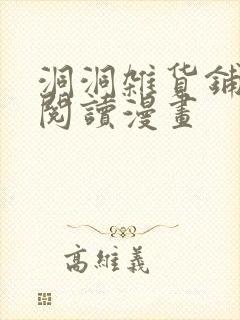 洞洞雜貨鋪
閱讀漫畫
高維義